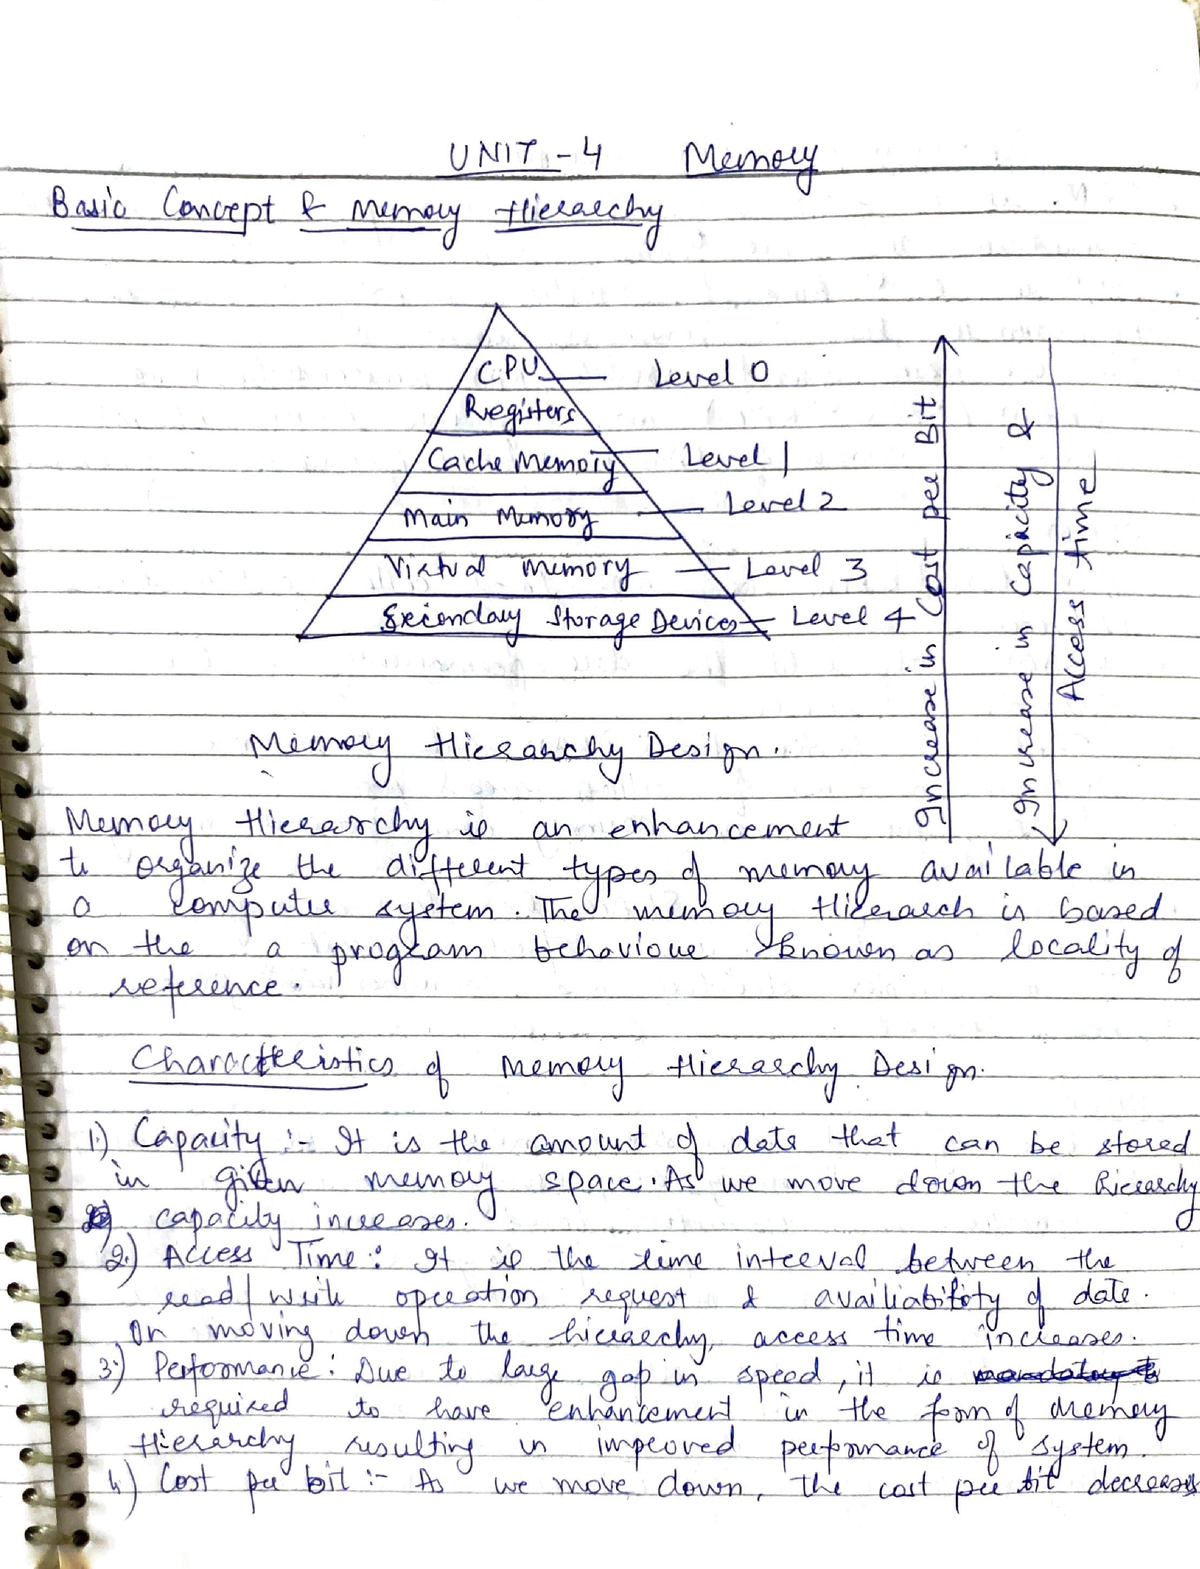 UNIT - 4 Memory
Basic Concept & Memory Hierarchy
CPU Level 0
Registers
Cache Memory Level 1
Main Memory Level 2
Virtual Memory Level 3
Secondary Storage Devices Level 4
Increase in Cost per Bit
Increase in Capacity &
Access time
Memory Hierarchy Design.
Memory Hierarchy is an enhancement
to organize the different types of memory available in
a computer system. The memory Hierarch is based
on the a program behaviour known as locality of
reference.
Characteristics of Memory Hierarchy Design.
1.) Capacity :- It is the amount of data that can be stored
in given memory space. As we move down the hierarchy
capacity increases.
2.) Access Time : It is the time interval between the
read/write operation request & availiability of data.
On moving down the hierarchy, access time increases.
3.) Performance : Due to large gap in speed, it is mandatory to
required to have enhancement in the form of Memory
Hierarchy resulting in improved performance of system.
4) Cost per bit :- As we move down, the cost per bit decreases